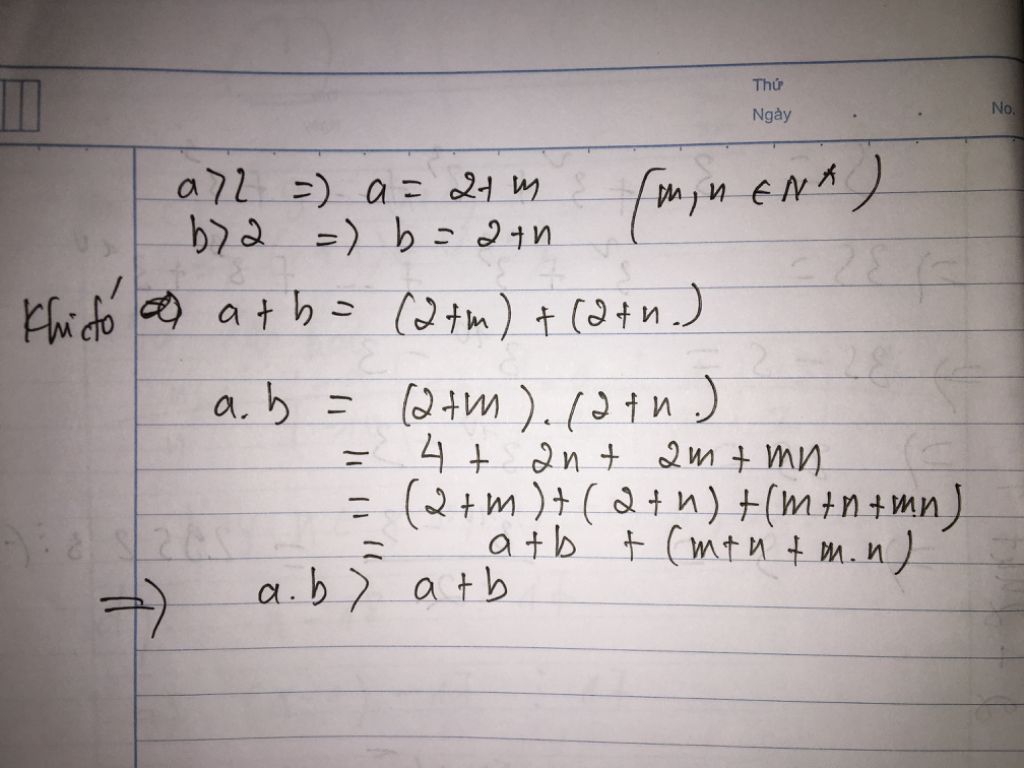 Thứ
Ngày
No.
a>2 => a = 2+m (m, n ∈ N*)
b>2 => b = 2+n
Khi đó a + b = (2+m) + (2+n.)
a. b = (2+m).(2+n.)
= 4 + 2n + 2m + mn
= (2+m)+(2+n)+(m+n+mn)
= a+b + (m+n+m.n)
=> a.b > a+b